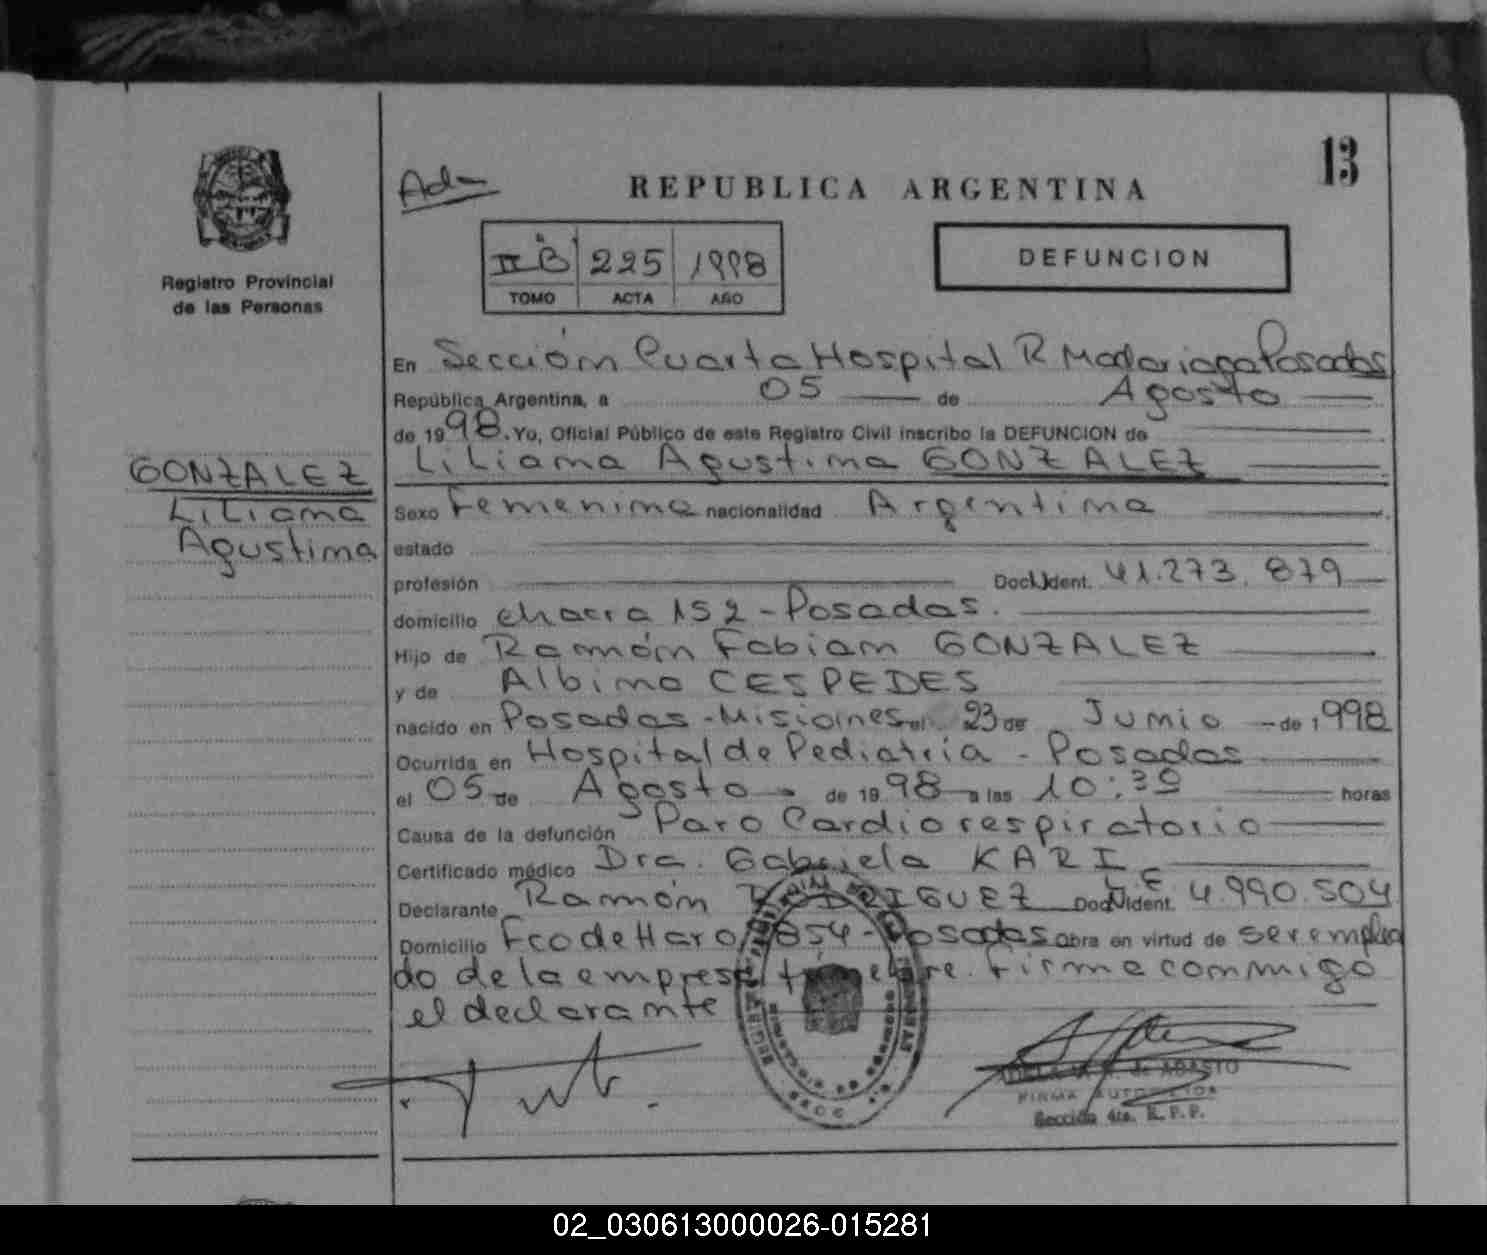 13
Ada
REPUBLICA ARGENTINA
Registro Provincial
de las Personas
II B 225 1998
TOMO ACTA AÑO
DEFUNCION
En Sección Cuarta Hospital R Madariaga Posadas
República Argentina, a 05 de Agosto
de 1998. Yo, Oficial Público de este Registro Civil inscribo la DEFUNCION de
Liliana Agustina GONZALEZ
GONZALEZ
Liliana
Agustina
Sexo Femenina nacionalidad Argentina
estado
profesión Doc. Ident. 41.273.879
domicilio chacra 152 - Posadas.
Hijo de Ramón Fabian GONZALEZ
y de Albina CESPEDES
nacido en Posadas - Misiones el 23 de Junio de 1998
Ocurrida en Hospital de Pediatría - Posadas
el 05 de Agosto de 1998 a las 10:30 horas
Causa de la defunción Paro Cardiorespiratorio
Certificado médico Dra. Gabriela KARI
Declarante Ramón RODRIGUEZ Doc. Ident. L E 4.990.504
Domicilio Fco de Haro 854 - Posadas Obra en virtud de ser emplea
do de la empresa fúnebre. Firma conmigo
el declarante
DE ABASTO
FIRMA AUTORIZADA
Sección 4ta. R. P. P.
02_030613000026-015281